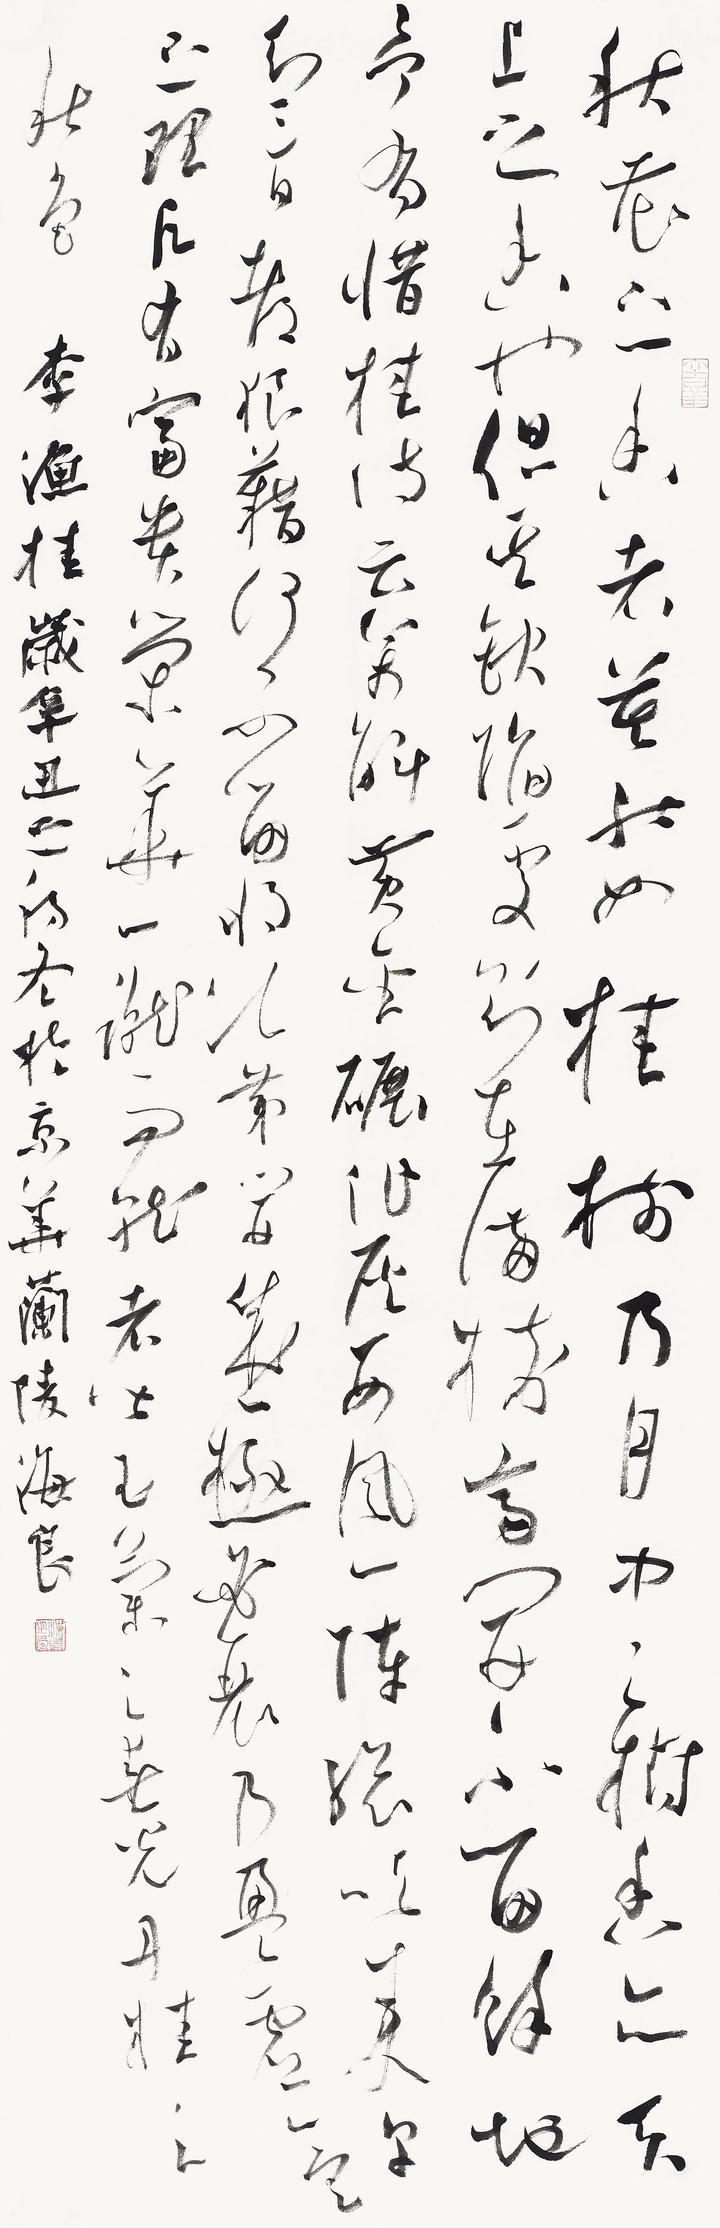 秋花之香者莫能如桂樹乃月中之樹香亦天
上之香也但其缺陷處則在滿樹齊開不留餘地
予有惜桂詩云萬斛黃金碾作灰西風一陣總吹來早
知三日都狼藉何不留將次第開盛極必衰乃盈虛一定
之理凡有富貴榮華一蹴而就者皆玉蘭之春光丹桂之
秋色 李漁桂歲辛丑之初冬於京華蘭陵海良